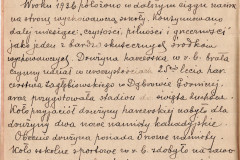 W roku 1936 położono w dalszym ciągu nacisk
na stronę wychowawczą szkoły. Kontynuowano
dalej miesiące: czystości, pilności i grzeczności
jako jeden z bardzo skutecznych środków
wychowawczych. Drużyna harcerska w r. b. brała
czynny udział w uroczystościach 25-lecia harc
erstwa Zagłębiowskiego w Dąbrowie Górniczej
oraz przygotowała stadion do święta
Koło przyjaciół drużyny harcerskiej nabyło dla
drużyny dwa nowe namioty
Obecnie drużyna posiada 3 nowe namioty.
Koło szkolne sportowe w r. b. zdobyło na zawo